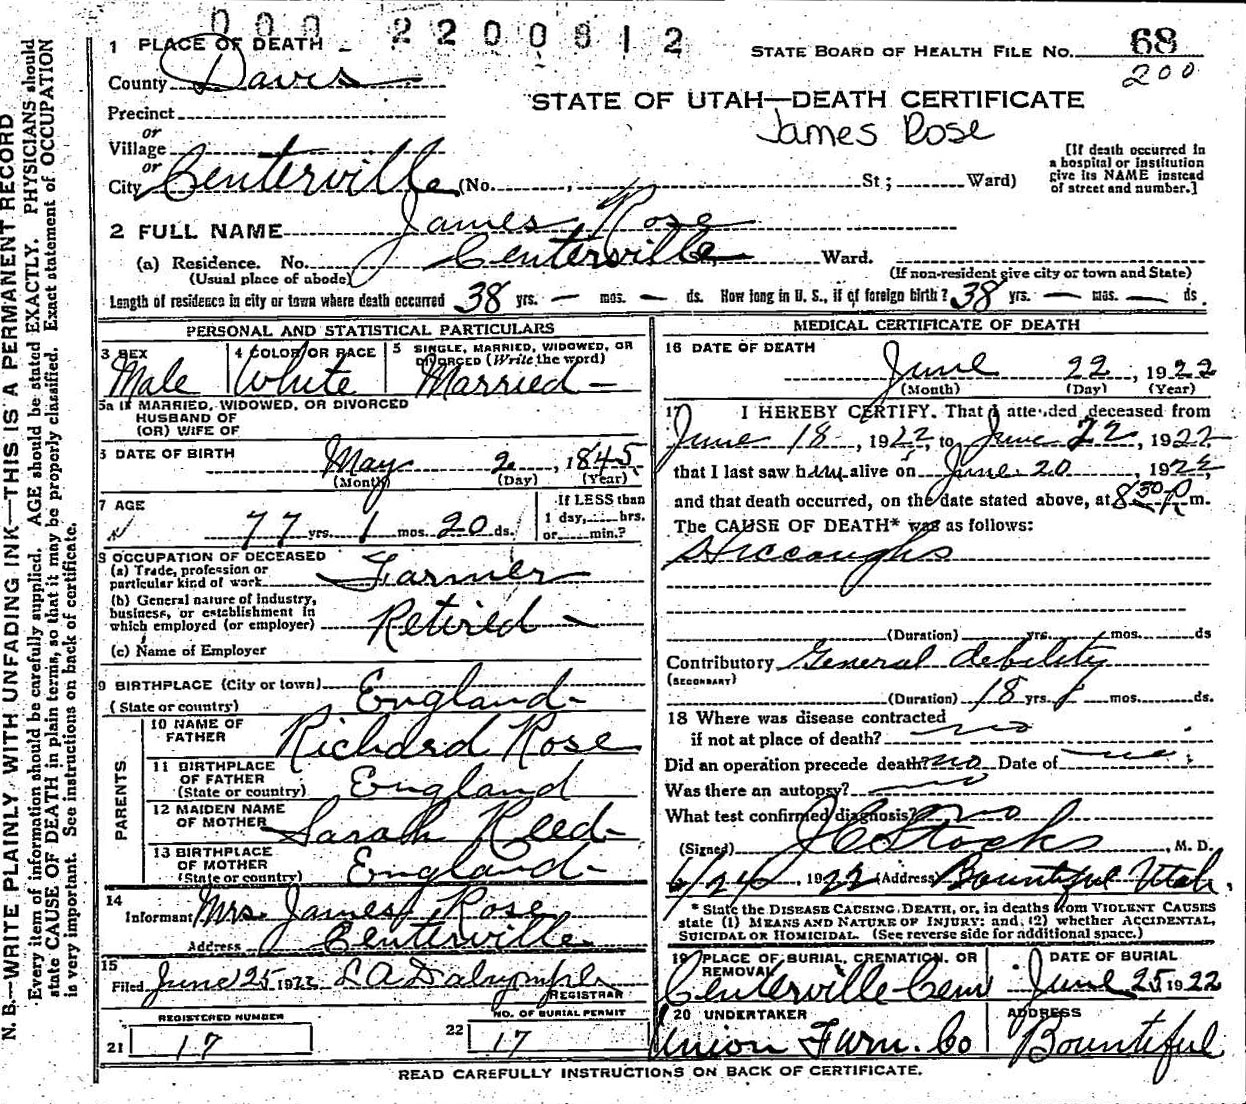 000 2200812
1 PLACE OF DEATH
STATE BOARD OF HEALTH FILE NO. 68
County Davis
200
STATE OF UTAH—DEATH CERTIFICATE
Precinct
James Rose
or
Village
or
City Centerville (No. , St; Ward)
[If death occurred in
a hospital or institution
give its NAME instead
of street and number.]
2 FULL NAME James Rose
(a) Residence. No. Centerville Ward.
(Usual place of abode)
(If non-resident give city or town and State)
Length of residence in city or town where death occurred 38 yrs. — mos. — ds. How long in U. S., if of foreign birth? 38 yrs. — mos. — ds.
PERSONAL AND STATISTICAL PARTICULARS
3 SEX
Male
4 COLOR OR RACE
White
5 SINGLE, MARRIED, WIDOWED, OR
DIVORCED (Write the word)
Married —
5a IF MARRIED, WIDOWED, OR DIVORCED
HUSBAND OF
(OR) WIFE OF
6 DATE OF BIRTH
May 2, 1845
(Month) (Day) (Year)
7 AGE
77 yrs. 1 mos. 20 ds.
If LESS than
1 day, hrs.
or min.?
8 OCCUPATION OF DECEASED
(a) Trade, profession or
particular kind of work Farmer
(b) General nature of industry,
business, or establishment in
which employed (or employer) Retired —
(c) Name of Employer
9 BIRTHPLACE (City or town)
(State or country) England
PARENTS
10 NAME OF
FATHER Richard Rose
11 BIRTHPLACE
OF FATHER
(State or country) England
12 MAIDEN NAME
OF MOTHER Sarah Reed
13 BIRTHPLACE
OF MOTHER
(State or country) England
14
Informant Mrs. James Rose
Address Centerville
15
Filed June 25 1922 L A Dalrymple
REGISTRAR
REGISTERED NUMBER
21 17
NO. OF BURIAL PERMIT
22 17
MEDICAL CERTIFICATE OF DEATH
16 DATE OF DEATH
June 22, 1922
(Month) (Day) (Year)
17 I HEREBY CERTIFY. That I attended deceased from
June 18, 1922, to June 22, 1922
that I last saw him alive on June 20, 1922,
and that death occurred, on the date stated above, at 8 30 P m.
The CAUSE OF DEATH* was as follows:
Hiccoughs
(Duration) yrs. mos. ds
Contributory General debility
(SECONDARY)
(Duration) 18 yrs. mos. ds.
18 Where was disease contracted
if not at place of death? no
Did an operation precede death? no Date of
Was there an autopsy? no
What test confirmed diagnosis? no
(Signed) J C Stocks, M. D.
6/24, 1922 (Address) Bountiful Utah.
* State the DISEASE CAUSING DEATH, or, in deaths from VIOLENT CAUSES
state (1) MEANS AND NATURE OF INJURY; and (2) whether ACCIDENTAL,
SUICIDAL OR HOMICIDAL. (See reverse side for additional space.)
19 PLACE OF BURIAL, CREMATION, OR
REMOVAL
Centerville Cem
DATE OF BURIAL
June 25 1922
20 UNDERTAKER
Union Furn. Co
ADDRESS
Bountiful
READ CAREFULLY INSTRUCTIONS ON BACK OF CERTIFICATE.
N. B.—WRITE PLAINLY WITH UNFADING INK—THIS IS A PERMANENT RECORD
Every item of information should be carefully supplied. AGE should be stated EXACTLY. PHYSICIANS should
state CAUSE OF DEATH in plain terms, so that it may be properly classified. Exact statement of OCCUPATION
is very important. See instructions on back of certificate.